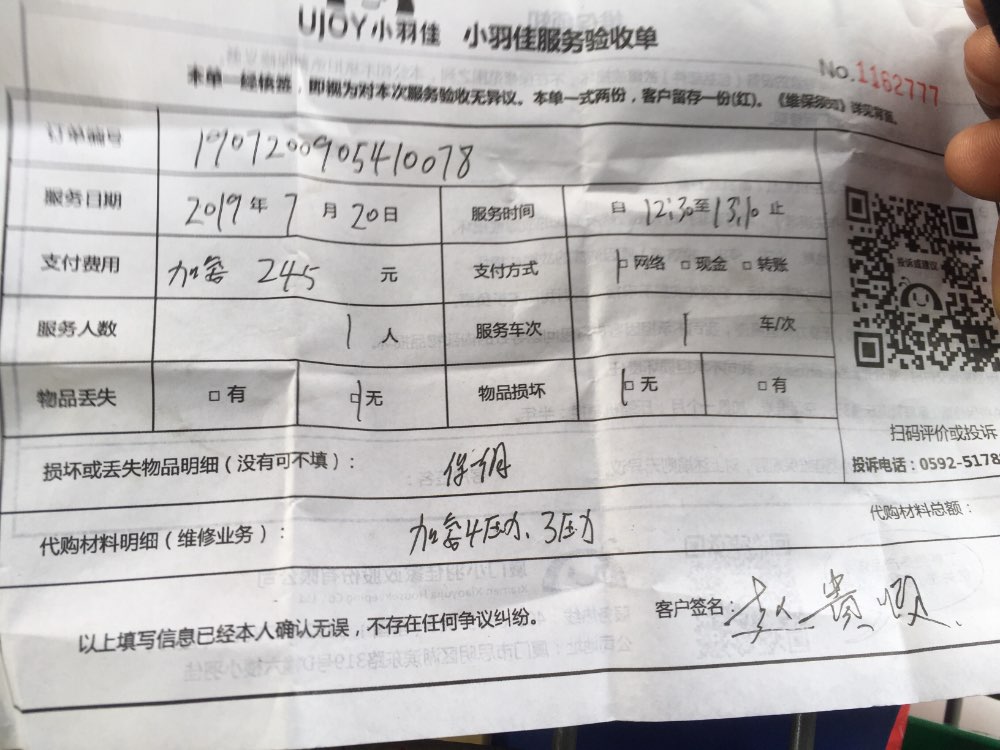 UJOY小羽佳 小羽佳服务验收单
No.1162777
本单一经镇签，即视为对本次服务验收无异议。本单一式两份，客户留存一份(红)。《维保须知》详见背面。
订单编号 1907200905410078
服务日期 2019年7月20日 服务时间 自12:30至13:10止
支付费用 加氟 245 元 支付方式 □网络 □现金 □转账
服务人数 1 人 服务车次 1 车/次
物品丢失 □有 □无 物品损坏 □无 □有
投诉或建议
扫码评价或投诉
投诉电话：0592-5178
损坏或丢失物品明细（没有可不填）：
代购材料总额：
代购材料明细（维修业务）： 加氟4压力、3压力
以上填写信息已经本人确认无误，不存在任何争议纠纷。
客户签名：